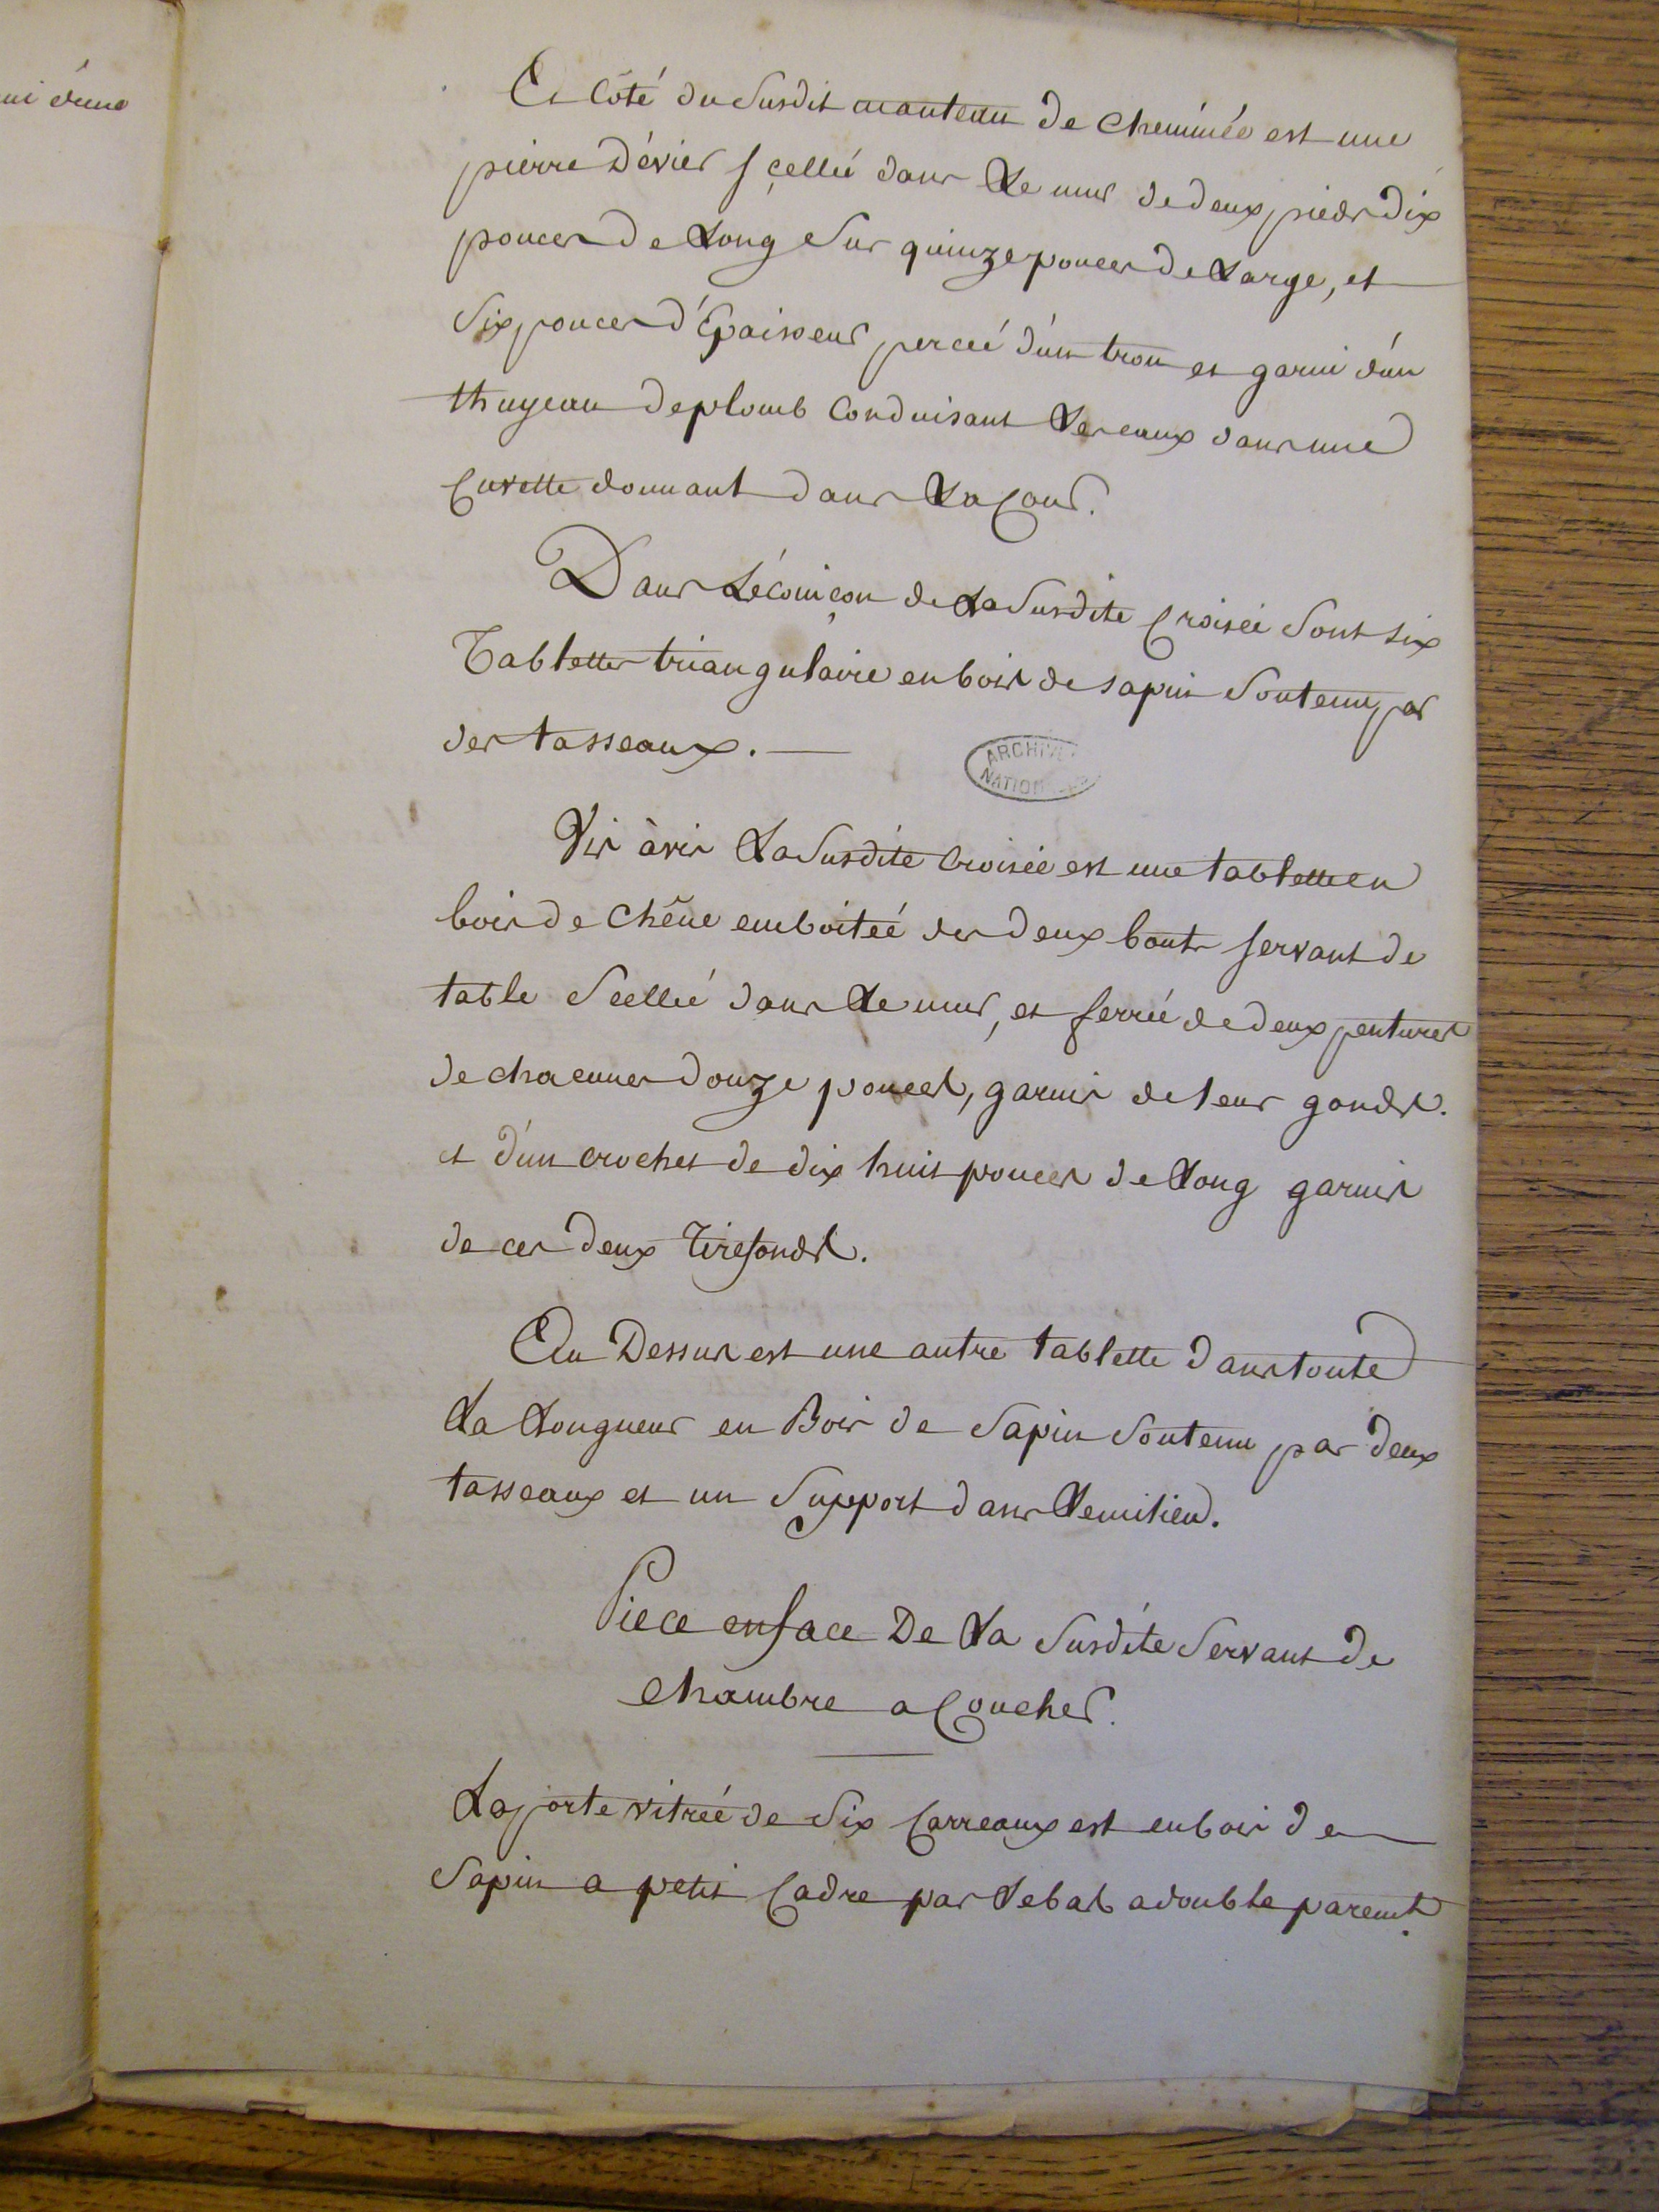 ni d'une
A Côté du Susdit manteau de Cheminée est une
pierre D'évier sçellée dans Le mur de deux pieds dix
pouces de Long Sur quinze pouces de Large, et
Six pouces d'Epaisseur percée d'un trou et garni d'un
thuyeau de plomb Conduisant Les eaux dans une
Cuvette donnant dans La Cour.
Dans L'écoinçon de La Susdite Croisée Sont six
Tablettes triangulaire en bois de sapin Soutenu par
des tasseaux.
ARCHIVES
NATIONALES
Vis àvis La Susdite Croisée est une tablette en
bois de Chêne emboîteé des deux bouts servant de
table Scellée dans Le mur, et ferrée de deux pentures
de chacunes douze pouces, garnis de leur gonds.
et d'un crochet de dix huit pouces de Long garnis
de ces deux tirefonds.
Au Dessus est une autre tablette dans toute
La Longueur en Bois de Sapin Soutenu par deux
tasseaux et un Support dans Le milieu.
Piece en face De La Susdite Servant de
Chambre a Coucher.
La porte vitreé de Six Carreaux est en bois de
Sapin a petit Cadre par Le bas a double paremt.